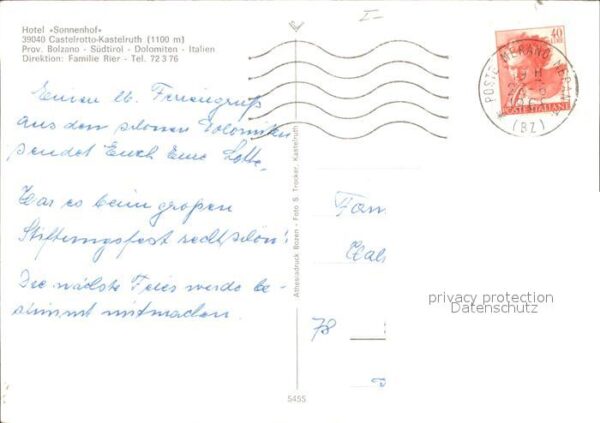 Hotel «Sonnenhof»
39040 Castelrotto-Kastelruth (1100 m)
Prov. Bolzano - Südtirol - Dolomiten - Italien
Direktion: Familie Rier - Tel. 72 3 76
Einen lb. Feriengruß
aus den schönen Dolomiten
sendet Euch Eure Lotte.
War es beim großen
Stiftungsfest recht schön?
Die nächste Feier werde be-
stimmt mitmachen.
Athesiadruck Bozen - Foto S. Trocker, Kastelruth
5455
I-
40
POSTE MERANO MERAN
(BZ)
POSTE ITALIANE
Fam
78
privacy protection
Datenschutz